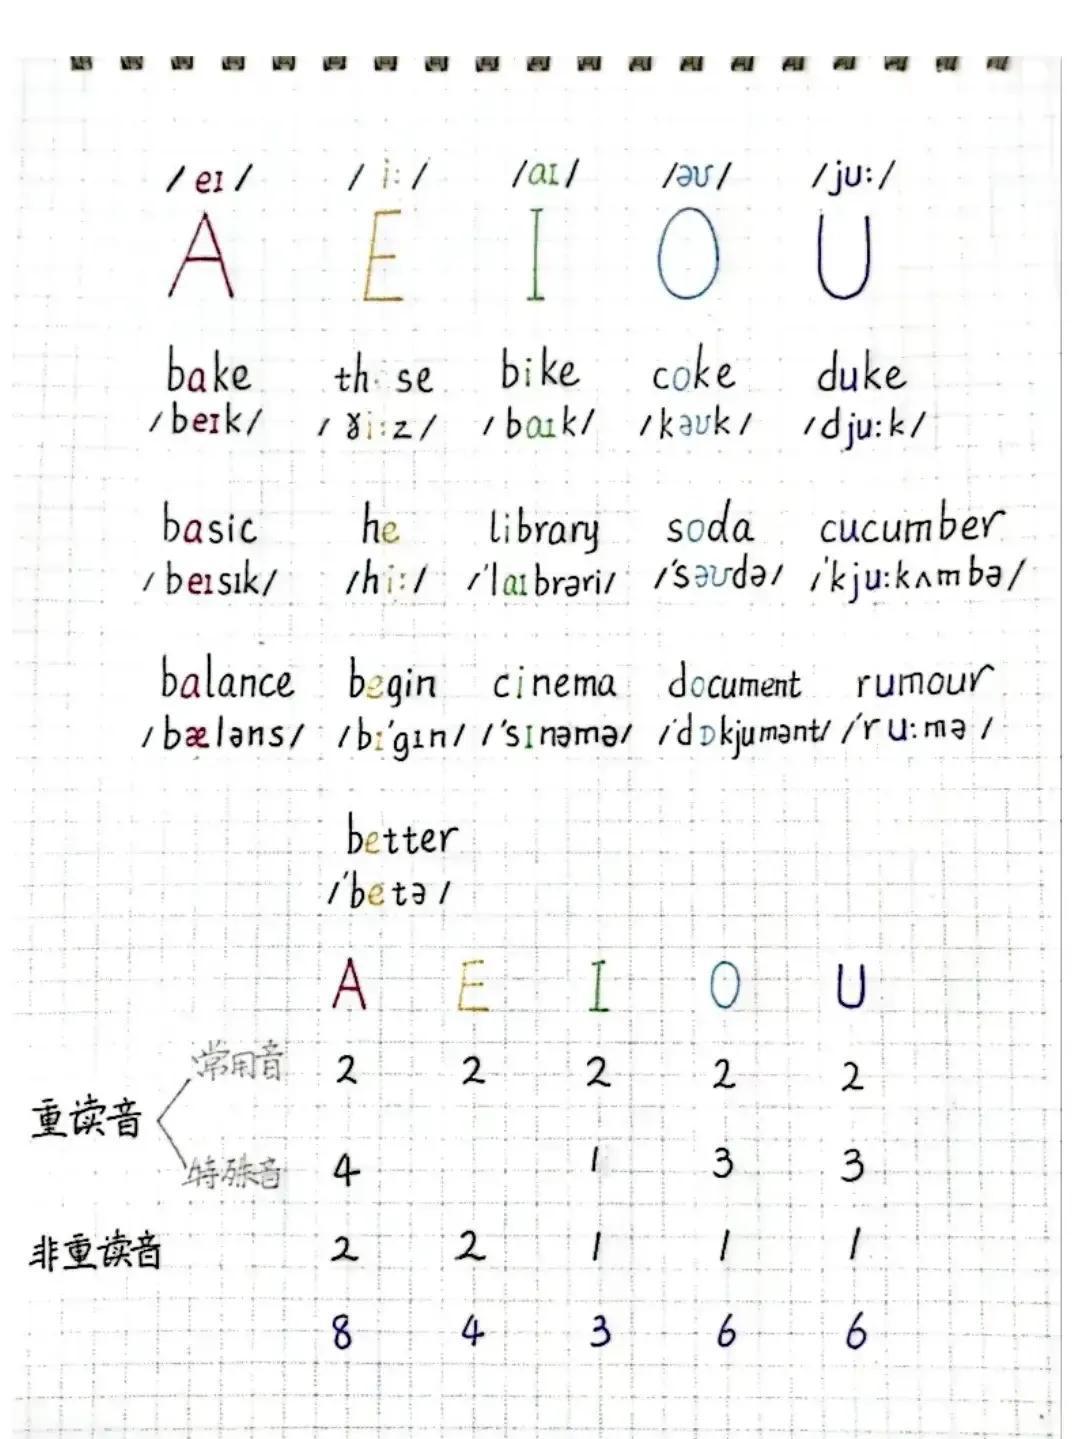 /eɪ/ /i:/ /aɪ/ /əʊ/ /ju:/
A E I O U
bake th se bike coke duke
/beɪk/ /ɣi:z/ /baɪk/ /kəʊk/ /dju:k/
basic he library soda cucumber
/beɪsɪk/ /hi:/ /'laɪbrəri/ /'səʊdə/ /'kju:kʌmbə/
balance begin cinema document rumour
/bæləns/ /bɪ'gɪn/ /'sɪnəmə/ /'dɒkjumənt/ /'ru:mə/
better
/'betə/
A E I O U
常用音 2 2 2 2 2
重读音
特殊音 4 1 3 3
非重读音 2 2 1 1 1
8 4 3 6 6